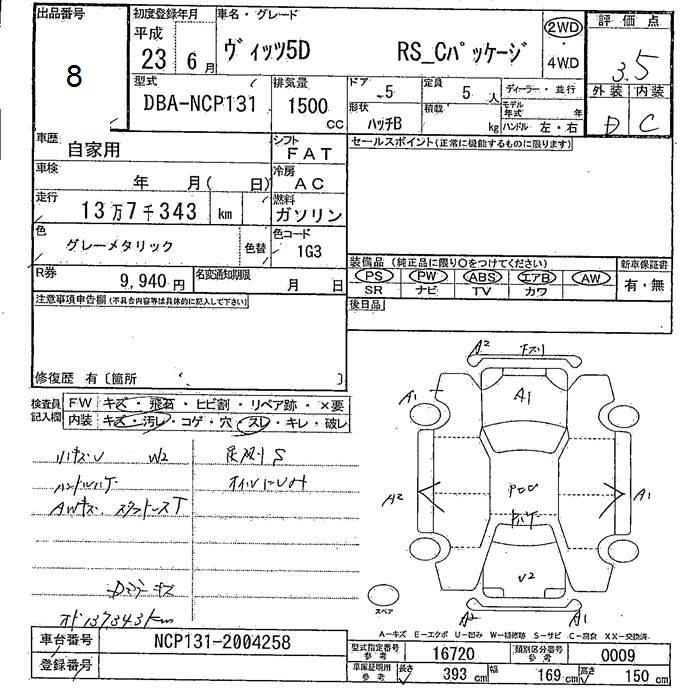 出品番号 初度登録年月 車名・グレード 評価点
8 平成 23 6月 ヴィッツ5D RS_Cパッケージ 2WD ・ 4WD 3.5
型式 排気量 ドア 定員 ディーラー・並行 外装 内装
DBA-NCP131 1500 CC 5 5 人 モデル年式 年 D C
形状 積載
ハッチB kg ハンドル 左・右
車歴 自家用 シフト FAT セールスポイント(正常に機能するものに限ります)
車検 年 月( 日) 冷房 AC
走行 13万7千343 km 燃料 ガソリン
色 グレーメタリック 色替 色コード 1G3
装備品 (純正品に限り○をつけてください) 新車保証書
R券 9,940円 名変通知期限 月 日 PS PW ABS エアB AW 有・無
SR ナビ TV カワ
注意事項申告欄(不具合内容等は具体的に記入して下さい) 後日品
修復歴 有〔箇所 〕
検査員記入欄 FW キズ・飛石・ヒビ割・リペア跡・×要
内装 キズ・汚レ・コゲ・穴・スレ・キレ・破レ
A2
A1 A1
A2 A1
W2
U2
スペア
A2 A1
137343km
A−キズ E−エクボ U−凹み W−補修跡 S−サビ C−腐食 XX−交換済
車台番号 NCP131-2004258
型式指定番号 参考 16720 類別区分番号 参考 0009
登録番号
車庫証明用 参考 長さ 393 cm 幅 169 cm 高さ 150 cm